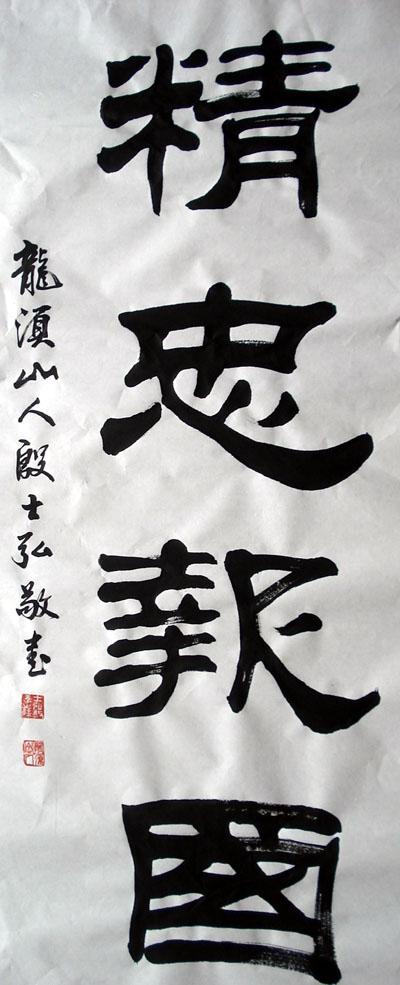 精忠報國
龍須山人殷士弘敬書